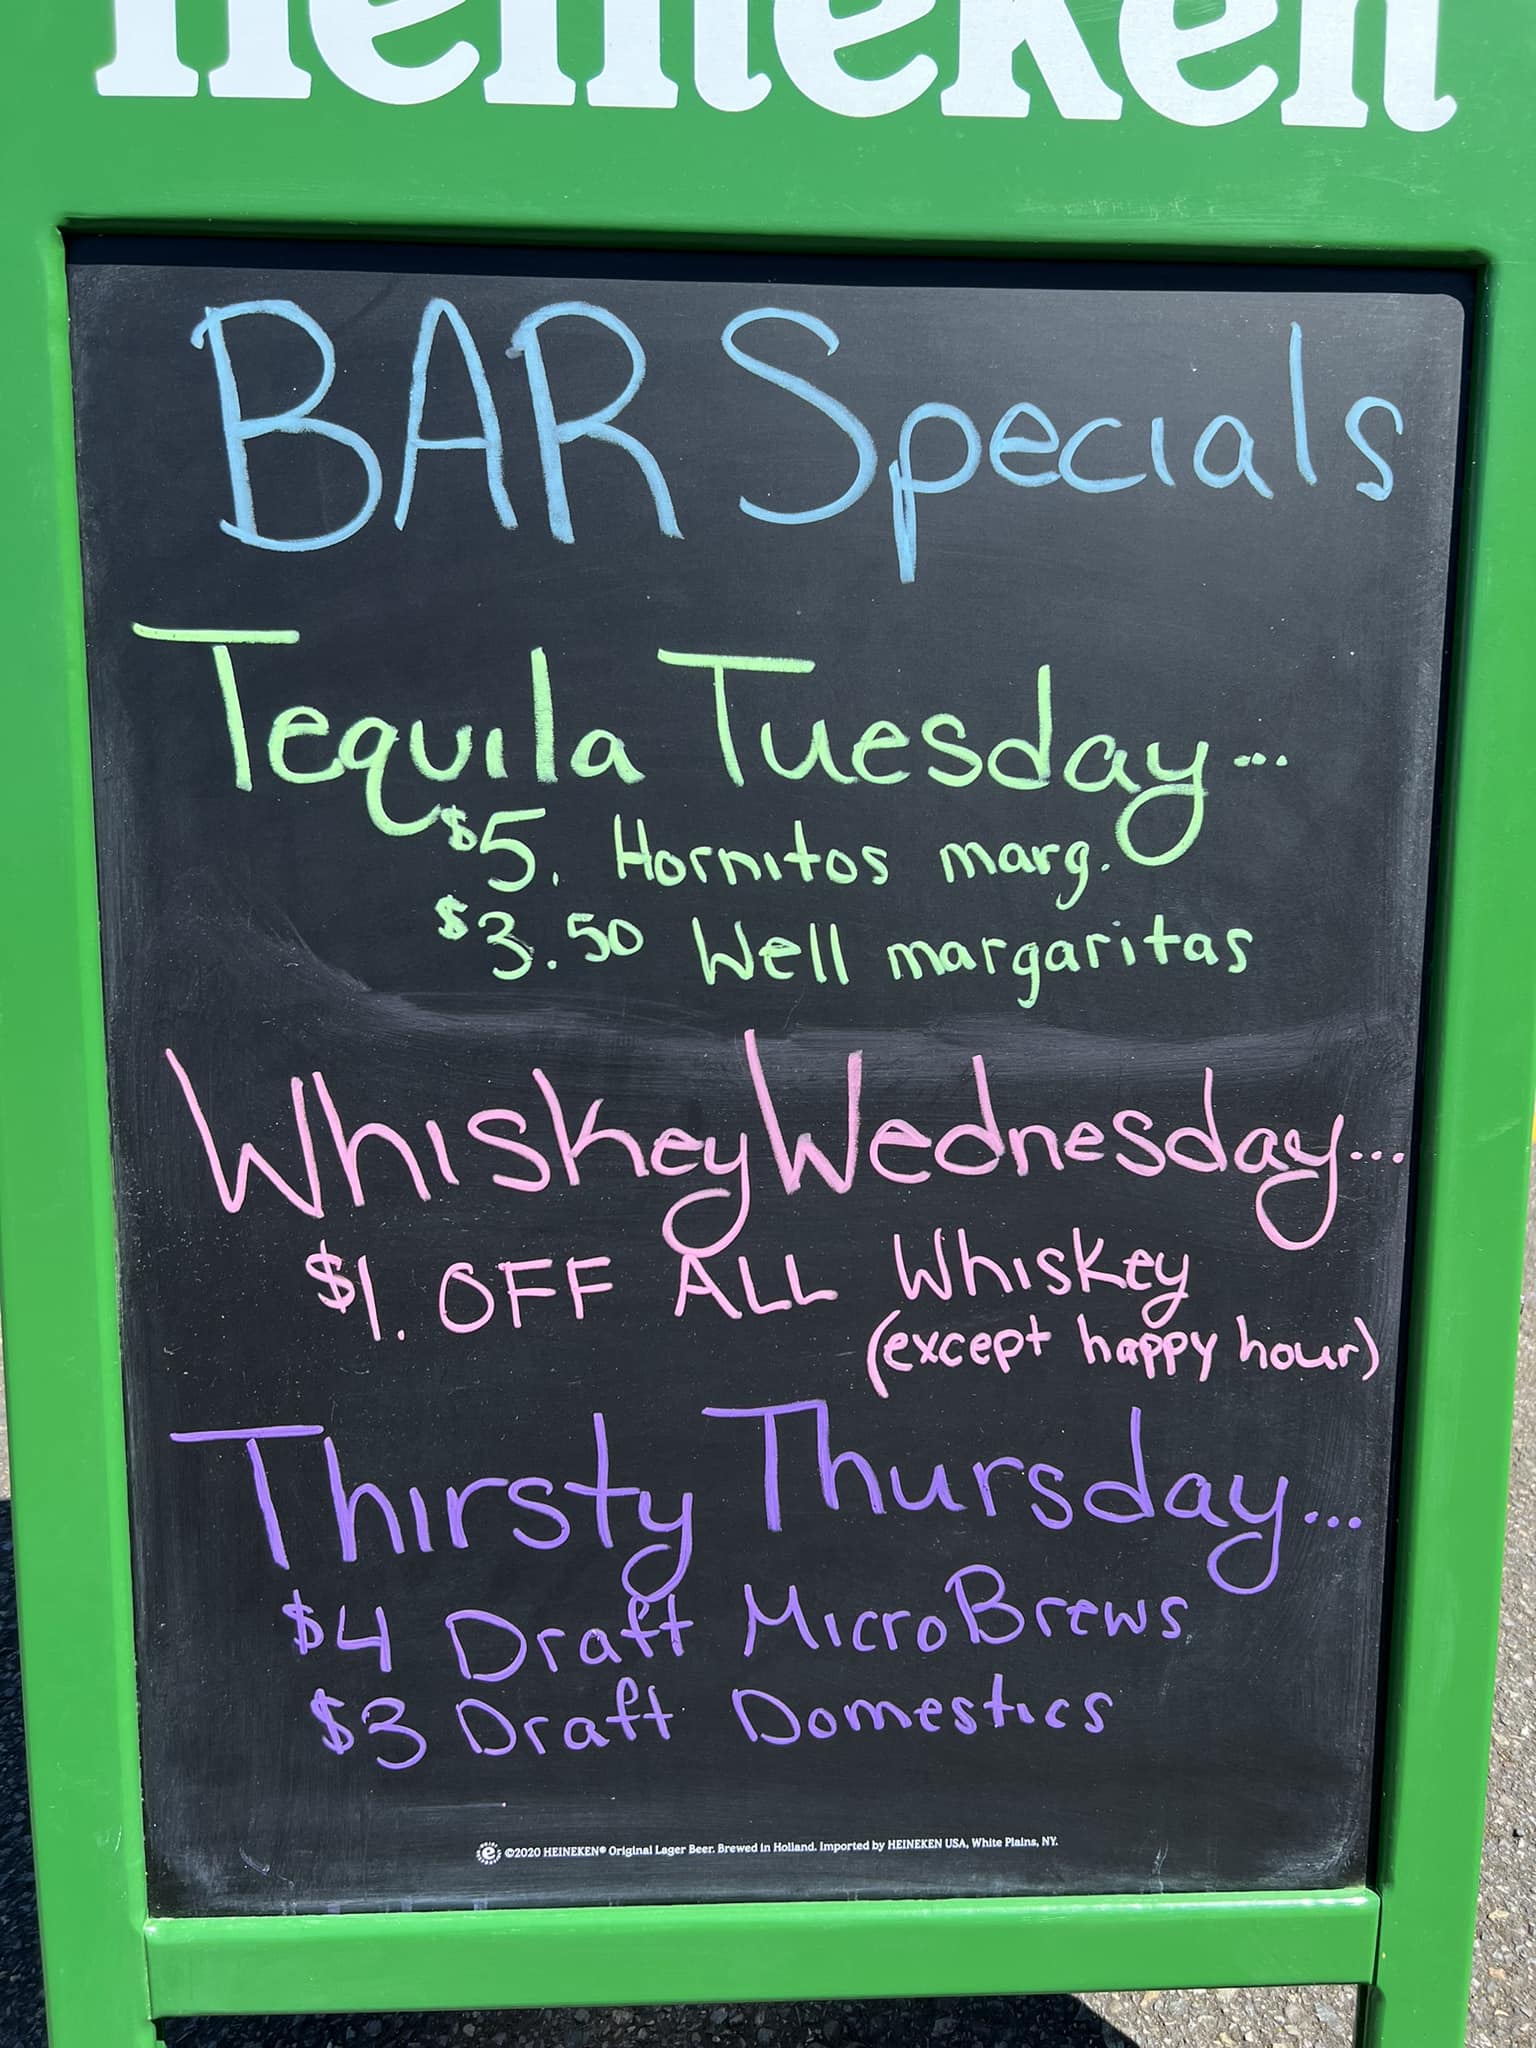 Heineken
BAR Specials
Tequila Tuesday...
$5. Hornitos marg.
$3.50 Well margaritas
Whiskey Wednesday...
$1. OFF ALL Whiskey
(except happy hour)
Thirsty Thursday...
$4 Draft MicroBrews
$3 Draft Domestics
©2020 HEINEKEN® Original Lager Beer. Brewed in Holland. Imported by HEINEKEN USA, White Plains, NY.